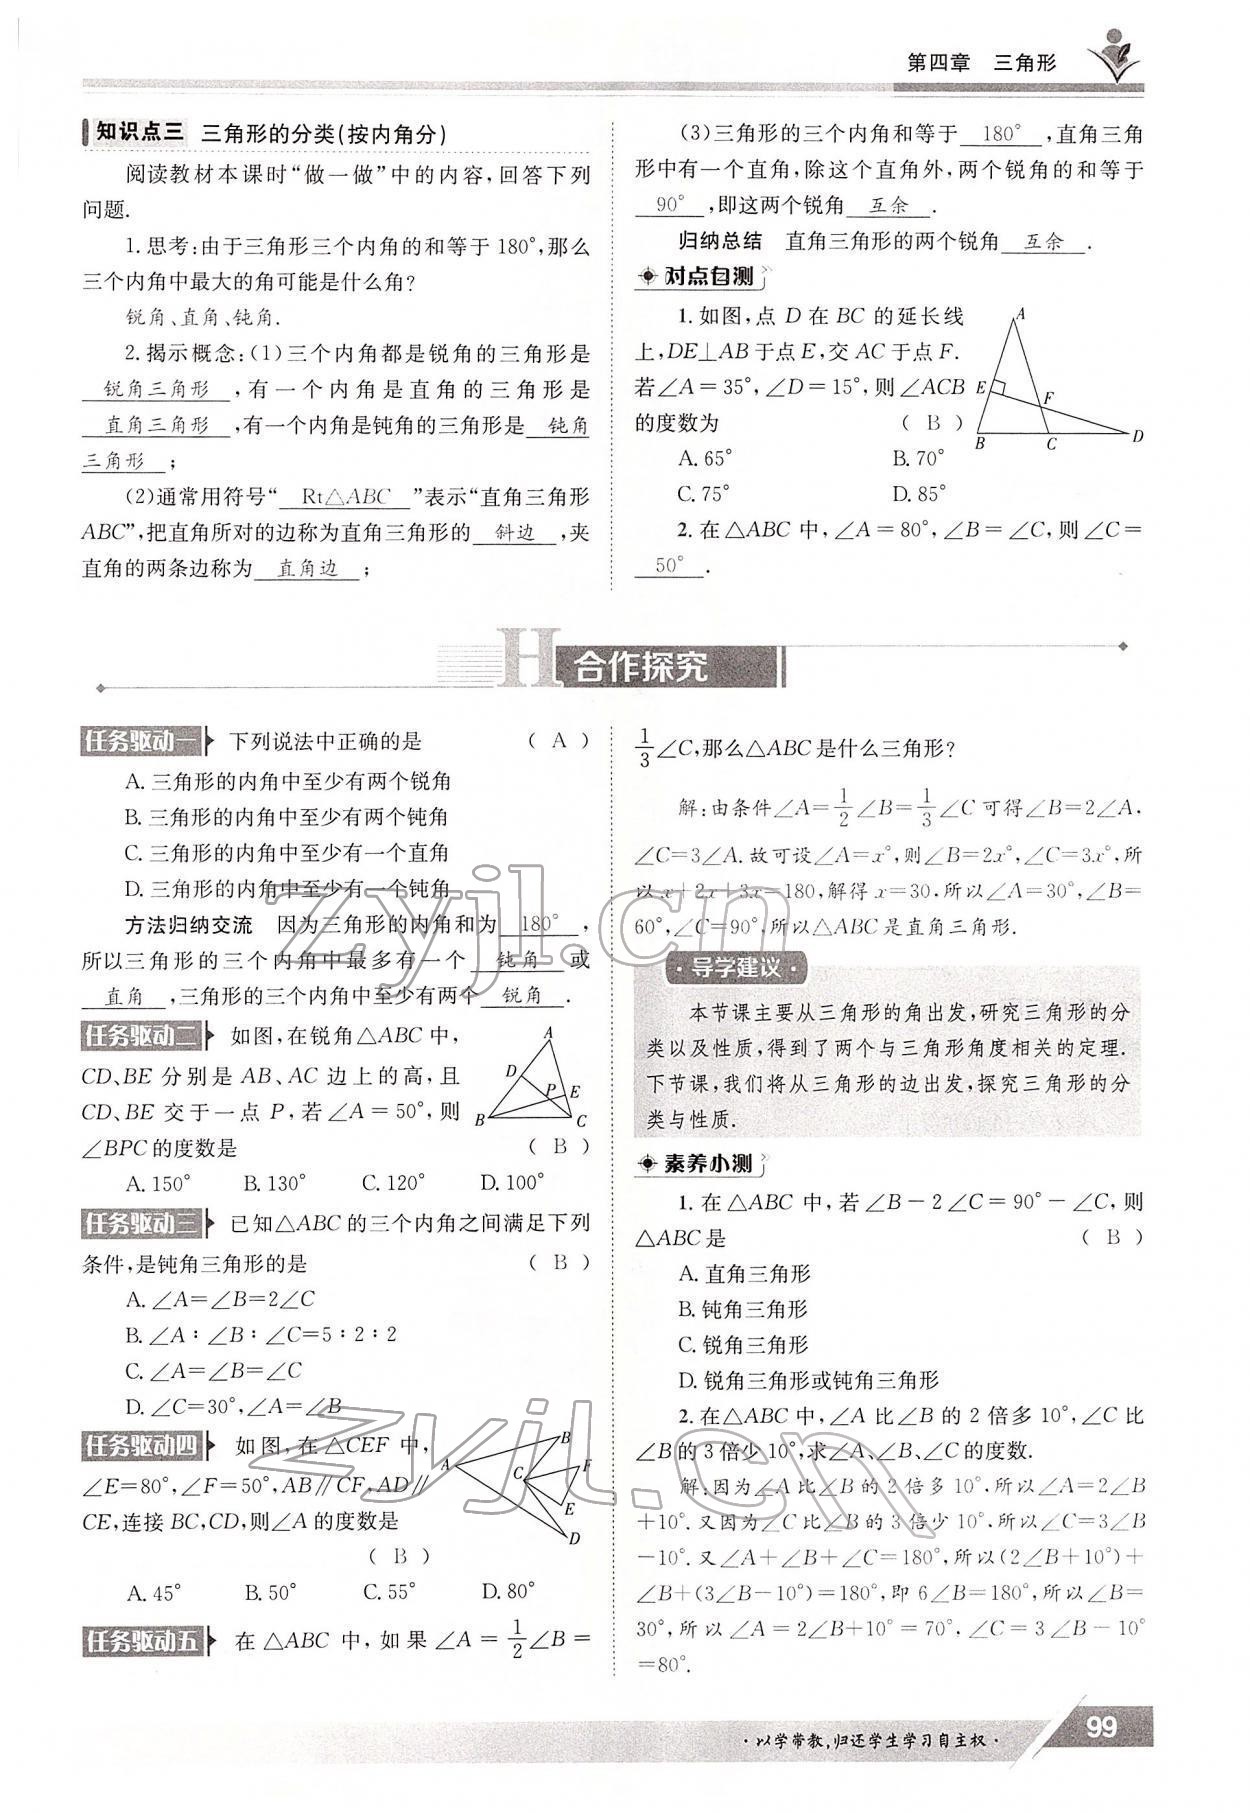 第四章 三角形
知识点三 三角形的分类(按内角分)
阅读教材本课时“做一做”中的内容,回答下列
问题.
1.思考:由于三角形三个内角的和等于180°,那么
三个内角中最大的角可能是什么角?
锐角、直角、钝角.
2.揭示概念:(1)三个内角都是锐角的三角形是
锐角三角形,有一个内角是直角的三角形是
直角三角形,有一个内角是钝角的三角形是 钝角
三角形;
(2)通常用符号“ Rt△ABC ”表示“直角三角形
ABC”,把直角所对的边称为直角三角形的 斜边 ,夹
直角的两条边称为 直角边 ;
(3)三角形的三个内角和等于 180° ,直角三角
形中有一个直角,除这个直角外,两个锐角的和等于
90° ,即这两个锐角 互余 .
归纳总结 直角三角形的两个锐角 互余 .
对点自测
1.如图,点 D 在 BC 的延长线
上,DE⊥AB于点E,交AC于点F.
若∠A=35°,∠D=15°,则∠ACB
的度数为 ( B )
A.65° B.70°
C.75° D.85°
A
E
F
B
C
D
2.在△ABC 中,∠A=80°,∠B=∠C,则∠C=
50° .
H 合作探究
任务驱动一 下列说法中正确的是 ( A )
A.三角形的内角中至少有两个锐角
B.三角形的内角中至少有两个钝角
C.三角形的内角中至少有一个直角
D.三角形的内角中至少有一个钝角
方法归纳交流 因为三角形的内角和为 180° ,
所以三角形的三个内角中最多有一个 钝角 或
直角 ,三角形的三个内角中至少有两个 锐角 .
任务驱动二 如图,在锐角△ABC中,
CD、BE 分别是 AB、AC 边上的高,且
CD、BE 交于一点 P,若∠A=50°,则
∠BPC的度数是 ( B )
A.150° B.130° C.120° D.100°
A
D
P
E
B
C
任务驱动三 已知△ABC的三个内角之间满足下列
条件,是钝角三角形的是 ( B )
A.∠A=∠B=2∠C
B.∠A∶∠B∶∠C=5∶2∶2
C.∠A=∠B=∠C
D.∠C=30°,∠A=∠B
任务驱动四 如图,在△CEF 中,
∠E=80°,∠F=50°,AB∥CF,AD∥
CE,连接BC,CD,则∠A的度数是
( B )
A.45° B.50° C.55° D.80°
B
A
F
C
E
D
任务驱动五 在△ABC 中,如果∠A=1/2∠B=
1/3∠C,那么△ABC是什么三角形?
解:由条件∠A=1/2∠B=1/3∠C可得∠B=2∠A,
∠C=3∠A.故可设∠A=x°,则∠B=2x°,∠C=3x°,所
以x+2x+3x=180,解得x=30,所以∠A=30°,∠B=
60°,∠C=90°,所以△ABC是直角三角形.
·导学建议·
本节课主要从三角形的角出发,研究三角形的分
类以及性质,得到了两个与三角形角度相关的定理.
下节课,我们将从三角形的边出发,探究三角形的分
类与性质.
素养小测
1.在△ABC 中,若∠B-2∠C=90°-∠C,则
△ABC是 ( B )
A.直角三角形
B.钝角三角形
C.锐角三角形
D.锐角三角形或钝角三角形
2.在△ABC中,∠A比∠B的2倍多10°,∠C比
∠B的3倍少10°,求∠A、∠B、∠C的度数.
解:因为∠A比∠B的2倍多10°,所以∠A=2∠B
+10°.又因为∠C比∠B的3倍少10°,所以∠C=3∠B
-10°.又∠A+∠B+∠C=180°,所以(2∠B+10°)+
∠B+(3∠B-10°)=180°,即6∠B=180°,所以∠B=
30°,所以∠A=2∠B+10°=70°,∠C=3∠B-10°
=80°.
zyjl.cn
zyjl.cn
·以学带教,归还学生学习自主权·
99